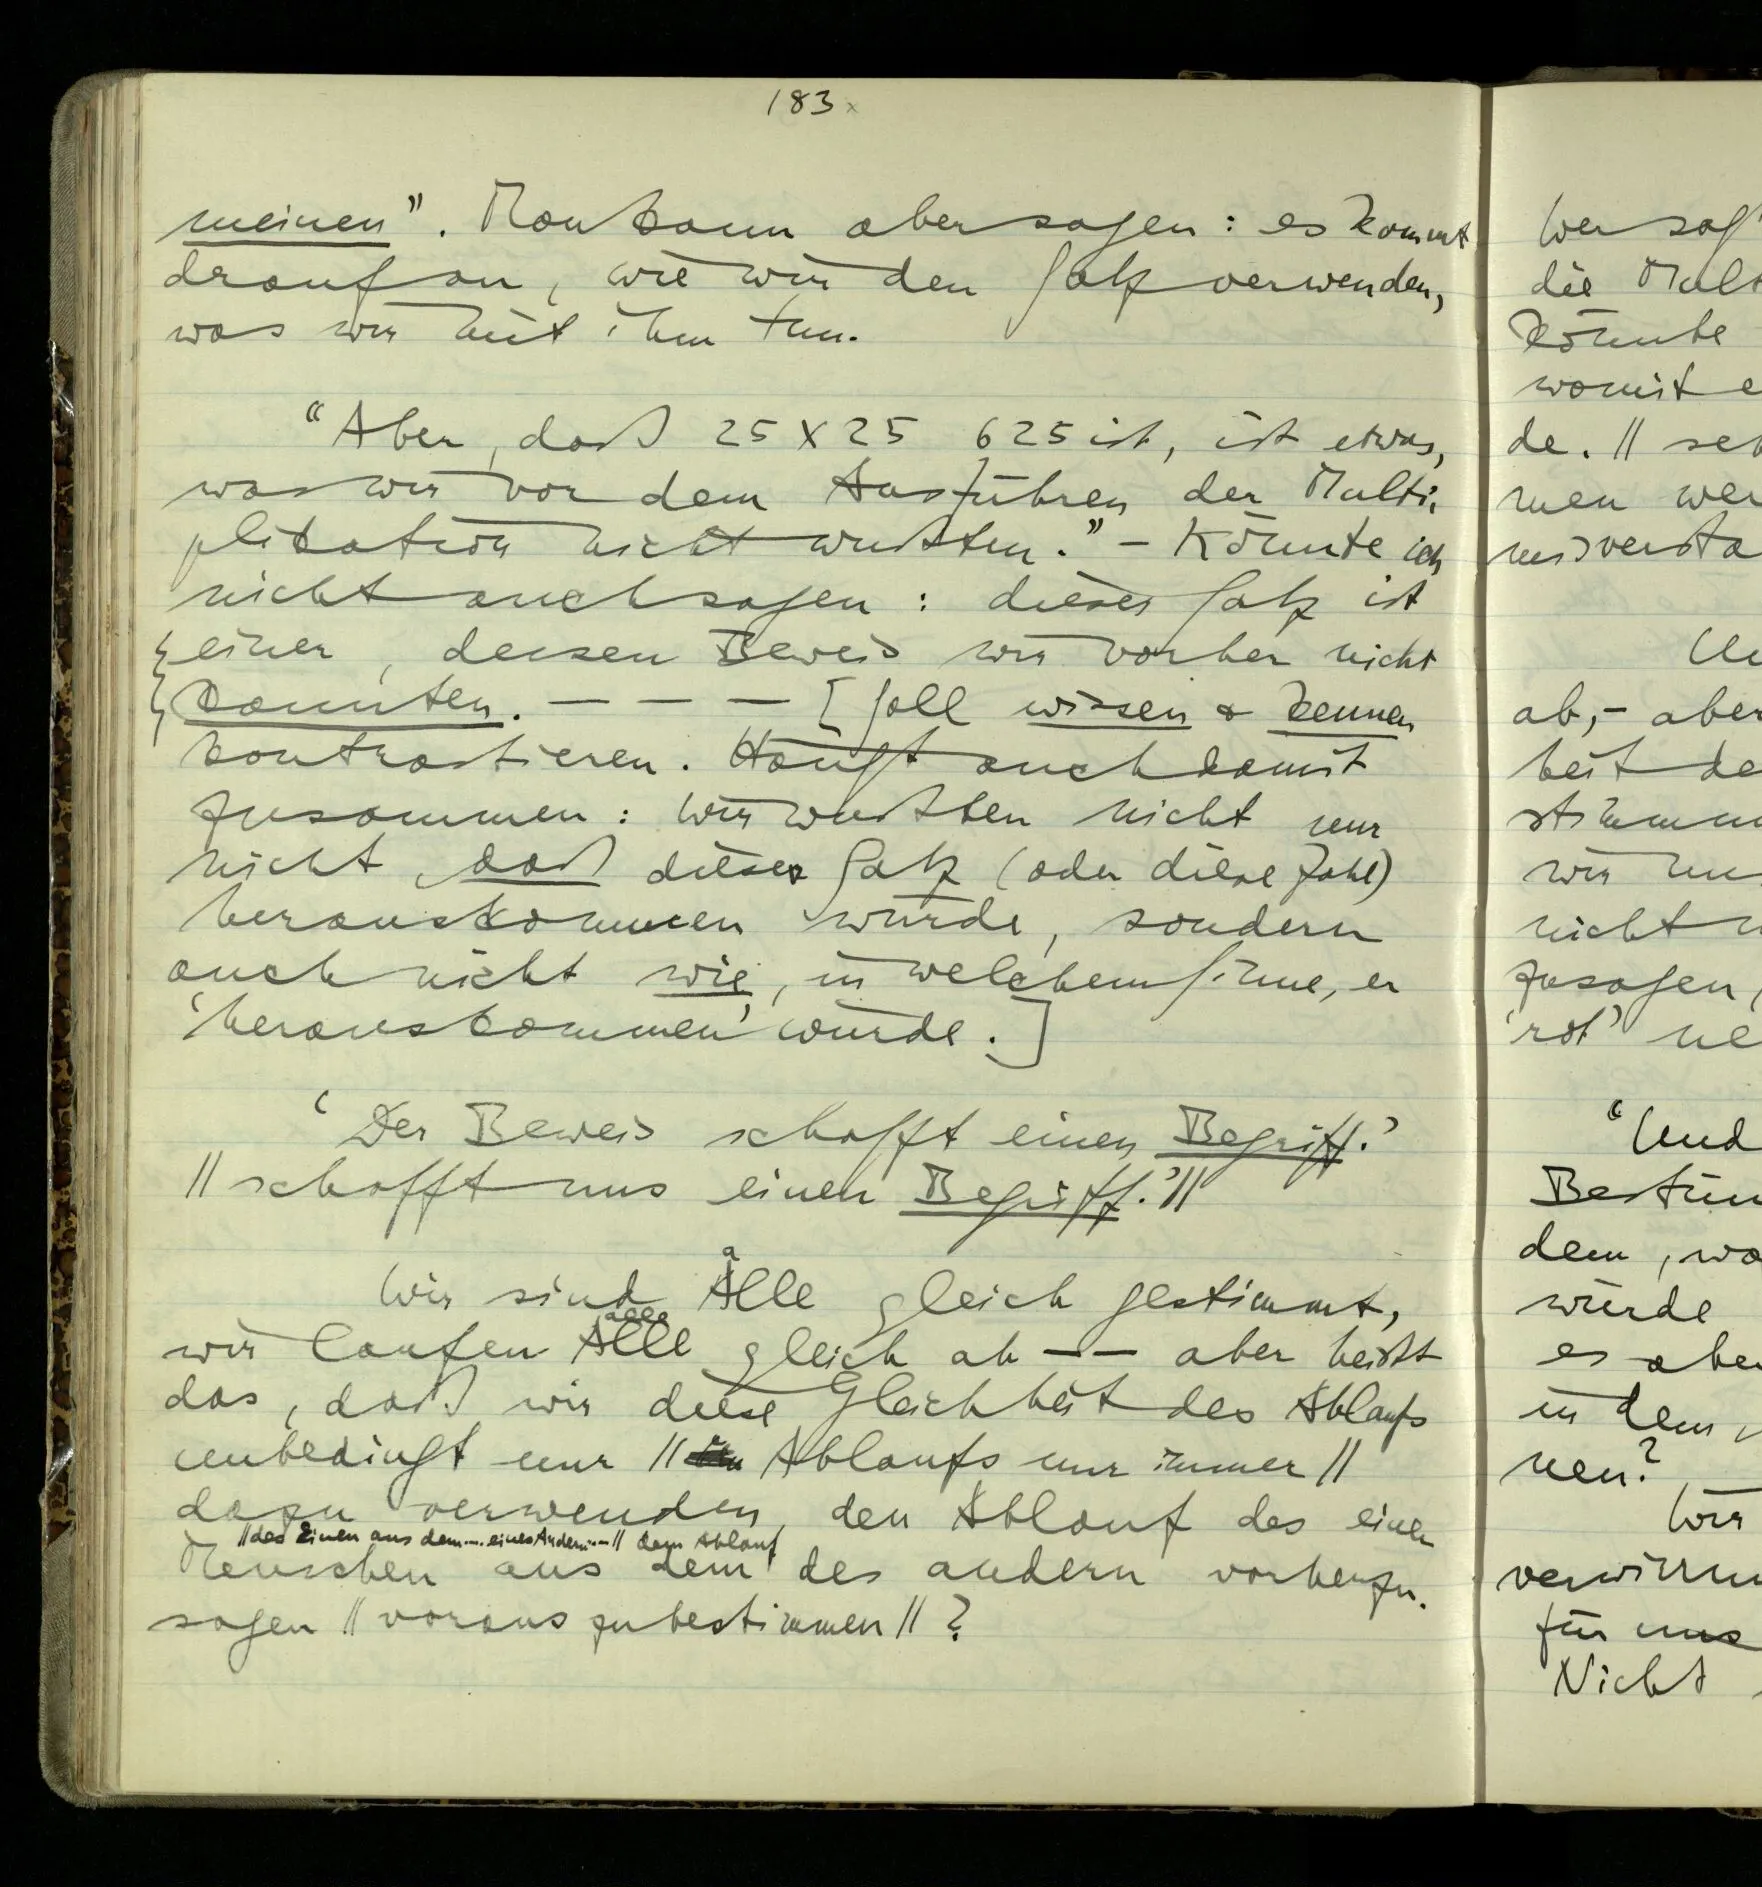 183
meinen". Man kann aber sagen: es kommt
drauf an, wie wir den Satz verwenden,
was wir mit ihm tun.
"Aber, daß 25 x 25 625 ist, ist etwas,
was wir vor dem Ausführen der Multi-
plikation nicht wußten." – Könnte ich
nicht auch sagen: dieser Satz ist
einer, dessen Beweis wir vorher nicht
kannten. — — — [Soll wissen & kennen
kontrastieren. Hängt auch damit
zusammen: wir wußten nicht nur
nicht, daß dieser Satz (oder diese Zahl)
herauskommen würde, sondern
auch nicht wie, in welchem Sinne, er
'herauskommen' würde.]
'Der Beweis schafft einen Begriff.'
|| schafft uns einen Begriff.' ||
a
Wir sind Alle gleich gestimmt,
alle
wir laufen Alle gleich ab — — aber heißt
das, daß wir diese Gleichheit des Ablaufs
unbedingt nur || Ablaufs nur immer ||
dazu verwenden, den Ablauf des einen
|| des Einen aus dem --- eines Andern --- || dem Ablauf
Menschen aus dem des andern vorherzu-
sagen || vorauszubestimmen || ?
Wer sag
die Mult
könnte
womit e
de. ||
men wer
missversta
ab, – aber
heit de
stimmu
wir
nicht
zusagen
'rot' ne
"Und
Bestim
dem, wa
würde
es aber
in dem
nen?
Wir
verwirru
für uns
Nicht